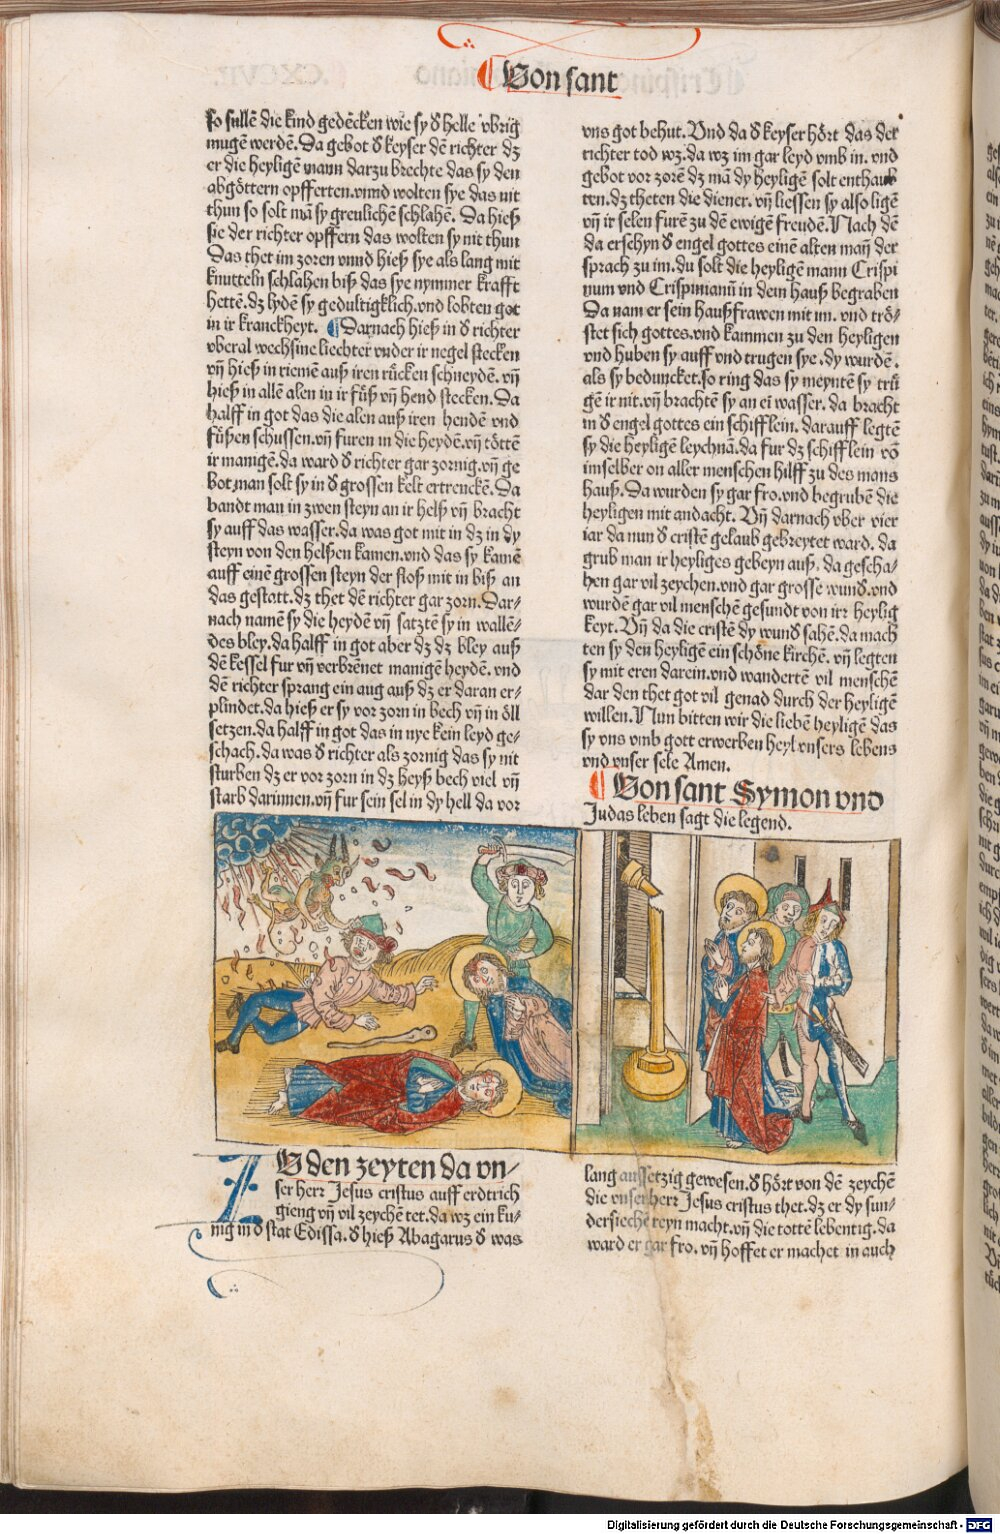 Von sant
so sullē die kind gedēcken wie sy d̕ helle vbrig
mugē werdē. Da gebot d̕ keyser dē richter dz
er die heyligē mann darzu brechte das sy den
abgöttern opfferten. vnnd wolten sye das nit
thun so solt mā sy greulichē schlahē. Da hieß
sie der richter opffern das wolten sy nit thun
Das thet im zoren vnnd hieß sye als lang mit
knutteln schlahen biß das sye nymmer krafft
hettē. dz lydē sy gedultigklich. vnd lobten got
in ir kranckheyt. ¶ Darnach hieß in d̕ richter
vberal wechsine liechter vnder ir negel stecken
vn̄ hieß in riemē auß iren rücken schneydē. vn̄
hieß in allē alen in ir füß vn̄ hend stecken. Da
halff in got das die alen auß iren hendē vnd
füßen schussen. vn̄ furen in die heydē. vn̄ töttē
ir manigē. da ward d̕ richter gar zornig. vn̄ ge
bot. man solt sy in d̕ grossen kelt ertrenckē. Da
bandt man in zwen steyn an ir helß vn̄ bracht
sy auff das wasser. da was got mit in dz in dy
steyn von den helßen kamen. vnd das sy kamē
auff einē grossen steyn der floß mit in biß an
das gestatt. dz thet dē richter gar zorn. Dar-
nach namē sy die heydē vn̄ satztē sy in wallē-
des bley. da halff in got aber dz dz bley auß
dē kessel fur vn̄ verbrēnet manigē heydē. vnd
dē richter sprang ein aug auß dz er daran er-
plindet. da hieß er sy vor zorn in bech vn̄ in öll
setzen. da halff in got das in nye kein leyd ge-
schach. da was d̕ richter als zornig das sy nit
sturben dz er vor zorn in dz heyß bech viel vn̄
starb darinnen. vn̄ fur sein sel in dy hell da vor
vns got behut. Vnd da d̕ keyser hört das der
richter tod wz. da wz im gar leyd vmb in. vnd
gebot vor zorē dz mā dy heyligē solt enthaub
ten. dz theten die diener. vn̄ liessen sy also ligē
vn̄ ir selen furē zu dē ewigē freudē. Nach dē
da erschyn d̕ engel gottes einē alten man̄ der
sprach zu im. du solt die heyligē mann Crispi
num vnd Crispinianū in dem hauß begraben
Da nam er sein haußfrawen mit im. vnd trö-
stet sich gottes. vnd kammen zu den heyligen
vnd huben sy auff vnd trugen sye. dy wurdē.
als sy beduncket. so ring das sy meyntē sy trü
gē ir nit. vn̄ brachtē sy an ei wasser. da bracht
in d̕ engel gottes ein schifflein. darauff legtē
sy die heyligē leychnā. da fur dz schifflein vō
imselber on aller menschen hilff zu des mans
hauß. Da wurden sy gar fro. vnd begrubē die
heyligen mit andacht. Vn̄ darnach vber vier
iar da nun d̕ cristē gelaub gebreytet ward. da
grub man ir heyliges gebeyn auß. da gescha-
hen gar vil zeychen. vnd gar grosse wund̕. vnd
wurdē gar vil menschē gesundt von irr heylig
keyt. Vn̄ da die cristē dy wund̕ sahē. da mach
ten sy den heyligē ein schöne kirchē. vn̄ legten
sy mit eren darein. vnd wandertē vil menschē
dar den thet got vil genad durch der heyligē
willen. Nun bitten wir die liebē heyligē das
sy vns vmb gott erwerben heyl vnsers lebens
vnd vnser sele Amen.
¶ Von sant Symon vnd
Judas leben sagt die legend.
ZU den zeyten da vn-
ser herr Jesus cristus auff erdtrich
gieng vn̄ vil zeychē tet. da wz ein ku-
nig in d̕ stat Edissa. d̕ hieß Abagarus d̕ was
lang aussetzig gewesen. d̕ hört von dē zeychē
die vnser herr Jesus cristus thet. dz er dy sun-
dersiechē reyn macht. vn̄ die tottē lebentig. da
ward er gar fro. vn̄ hoffet er machet in auch
Digitalisierung gefördert durch die Deutsche Forschungsgemeinschaft - DFG